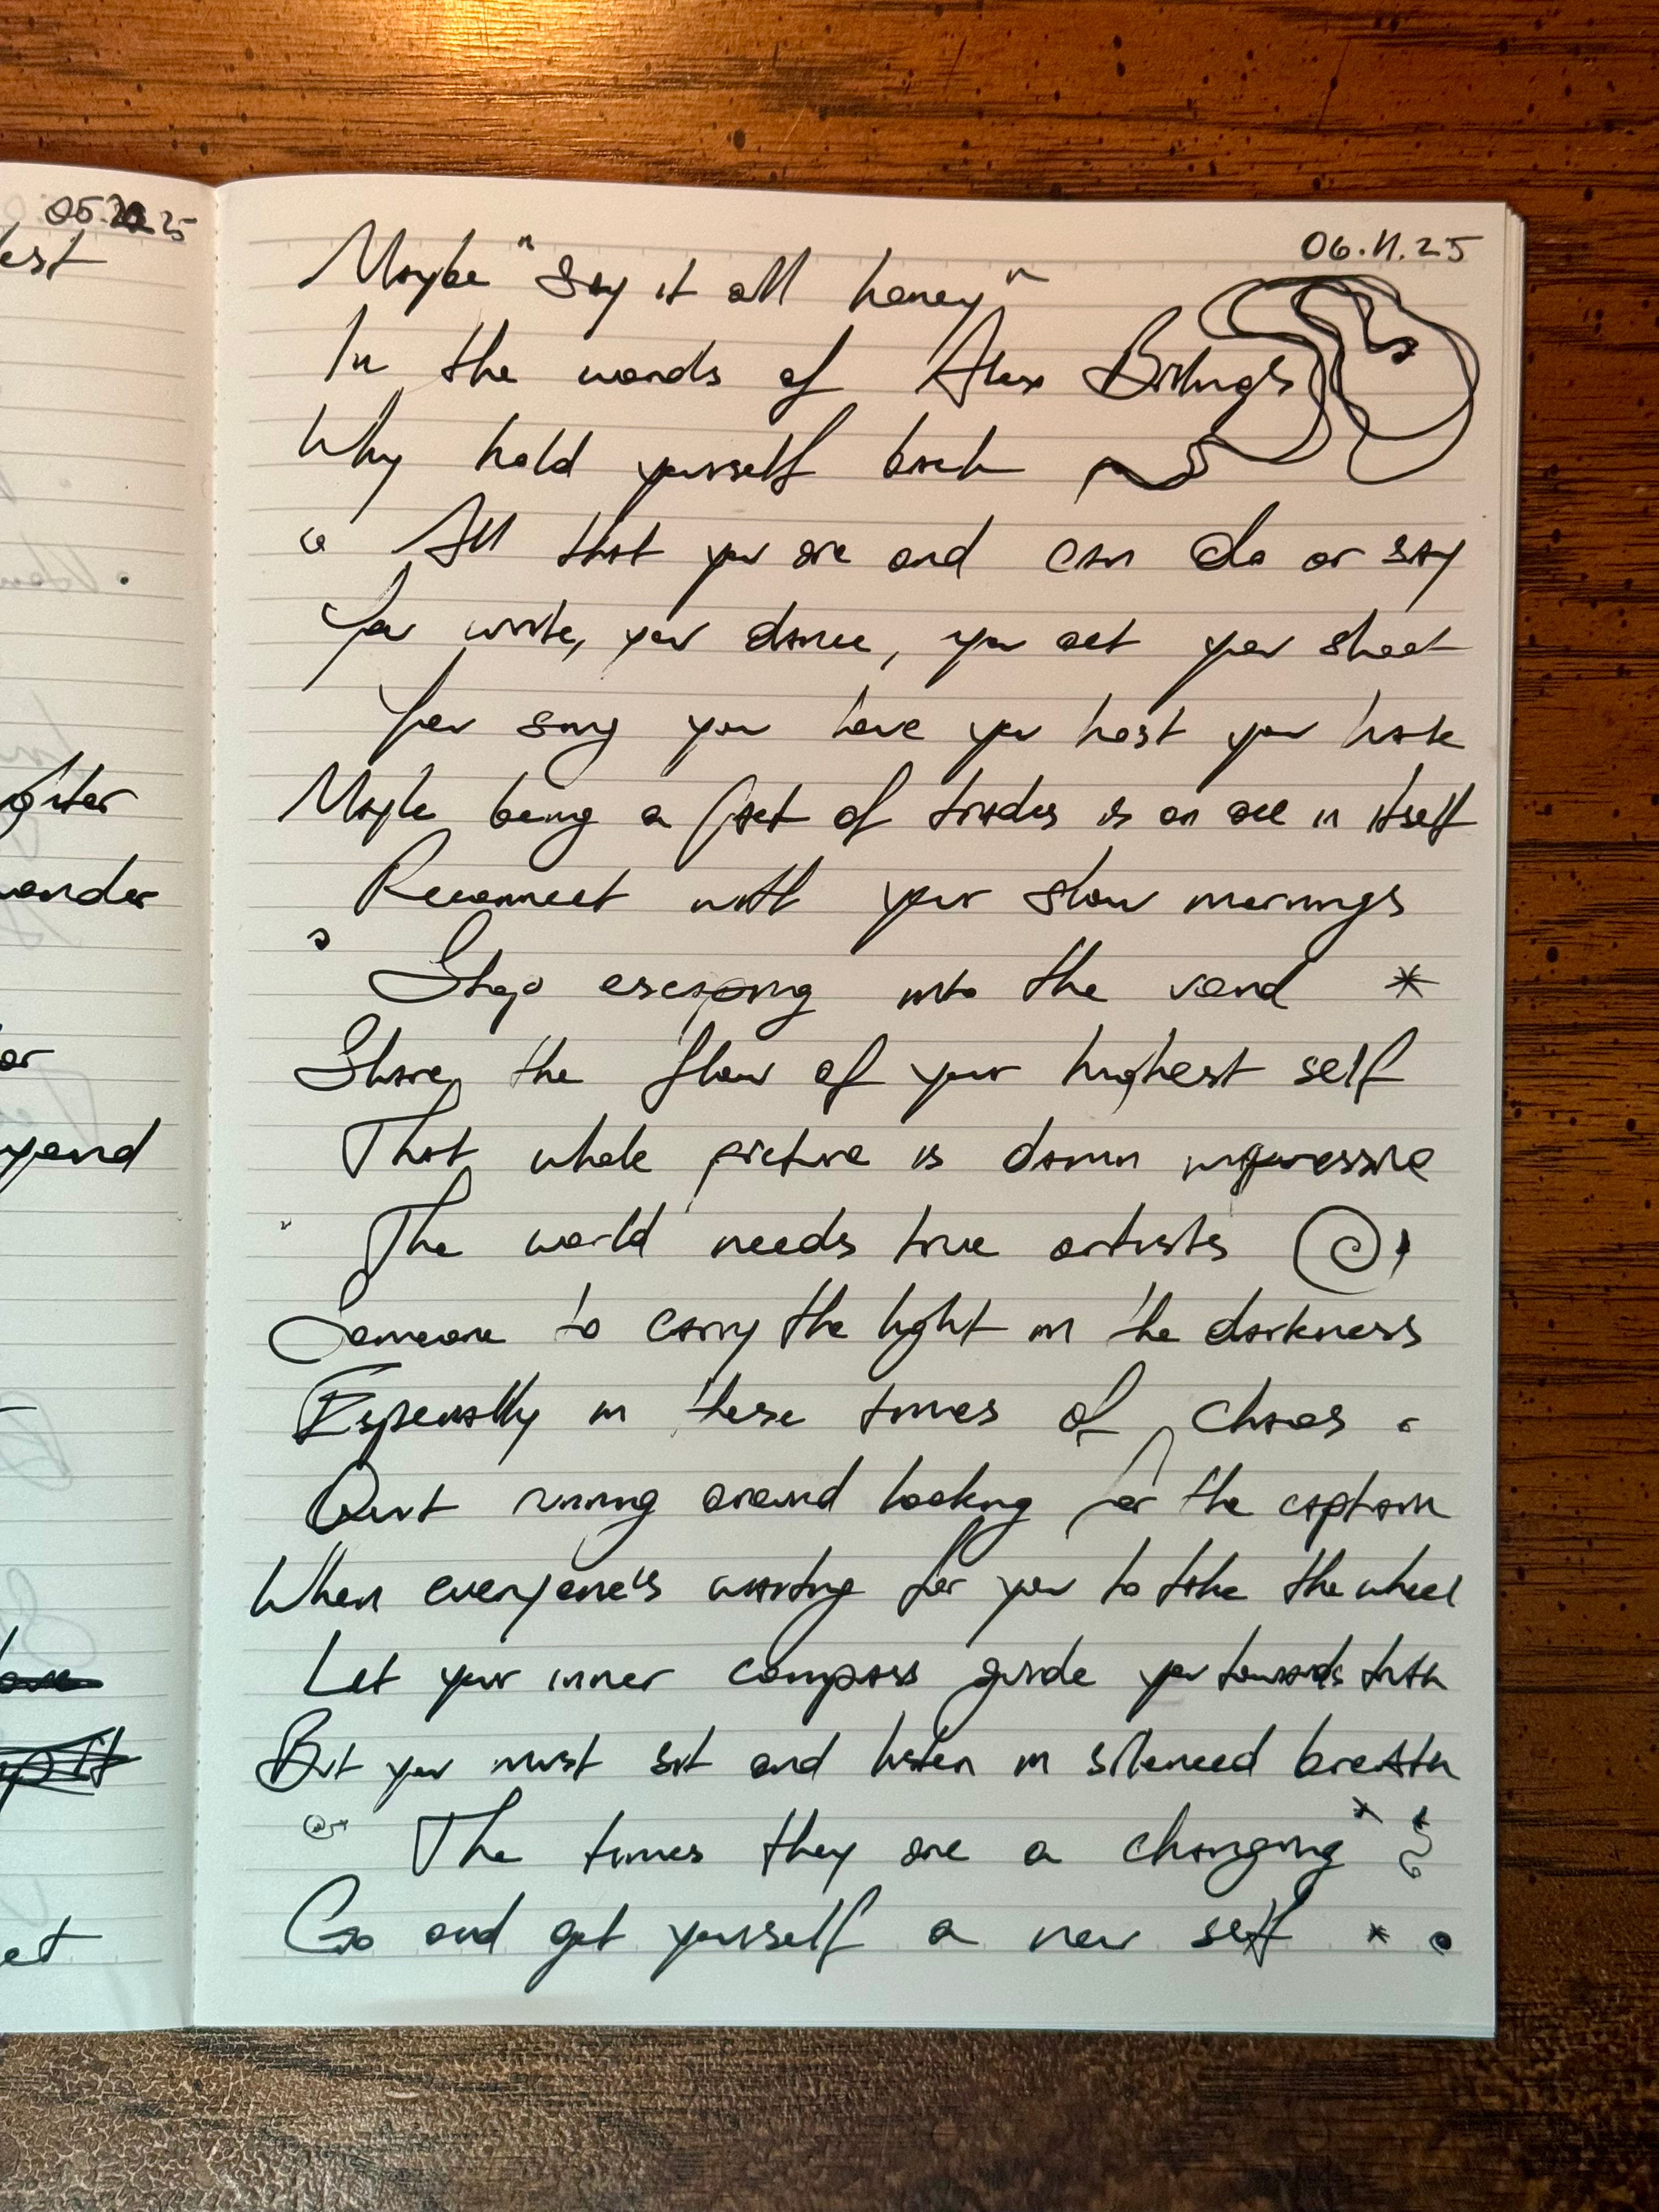 05.22.25
est
giter
wander
or
et
06.11.25
Maybe "Say it all honey"
In the words of Alex
Why hold yourself back
All that you are and can do or say
You write, you dance, you act you shoot
You sing you love you host you
Maybe being a of trades is an ace in itself
Reconnect with your slow mornings
Stop escaping into the void *
Share the flow of your highest self
That whole picture is damn impressive
The world needs true artists
Someone to carry the light in the darkness
Especially in these times of chaos
Quit running around looking for the captain
When everyone's waiting for you to take the wheel
Let your inner compass guide you towards truth
But you must sit and listen in silenced breath
"The times they are a changing"
Go and get yourself a new self *